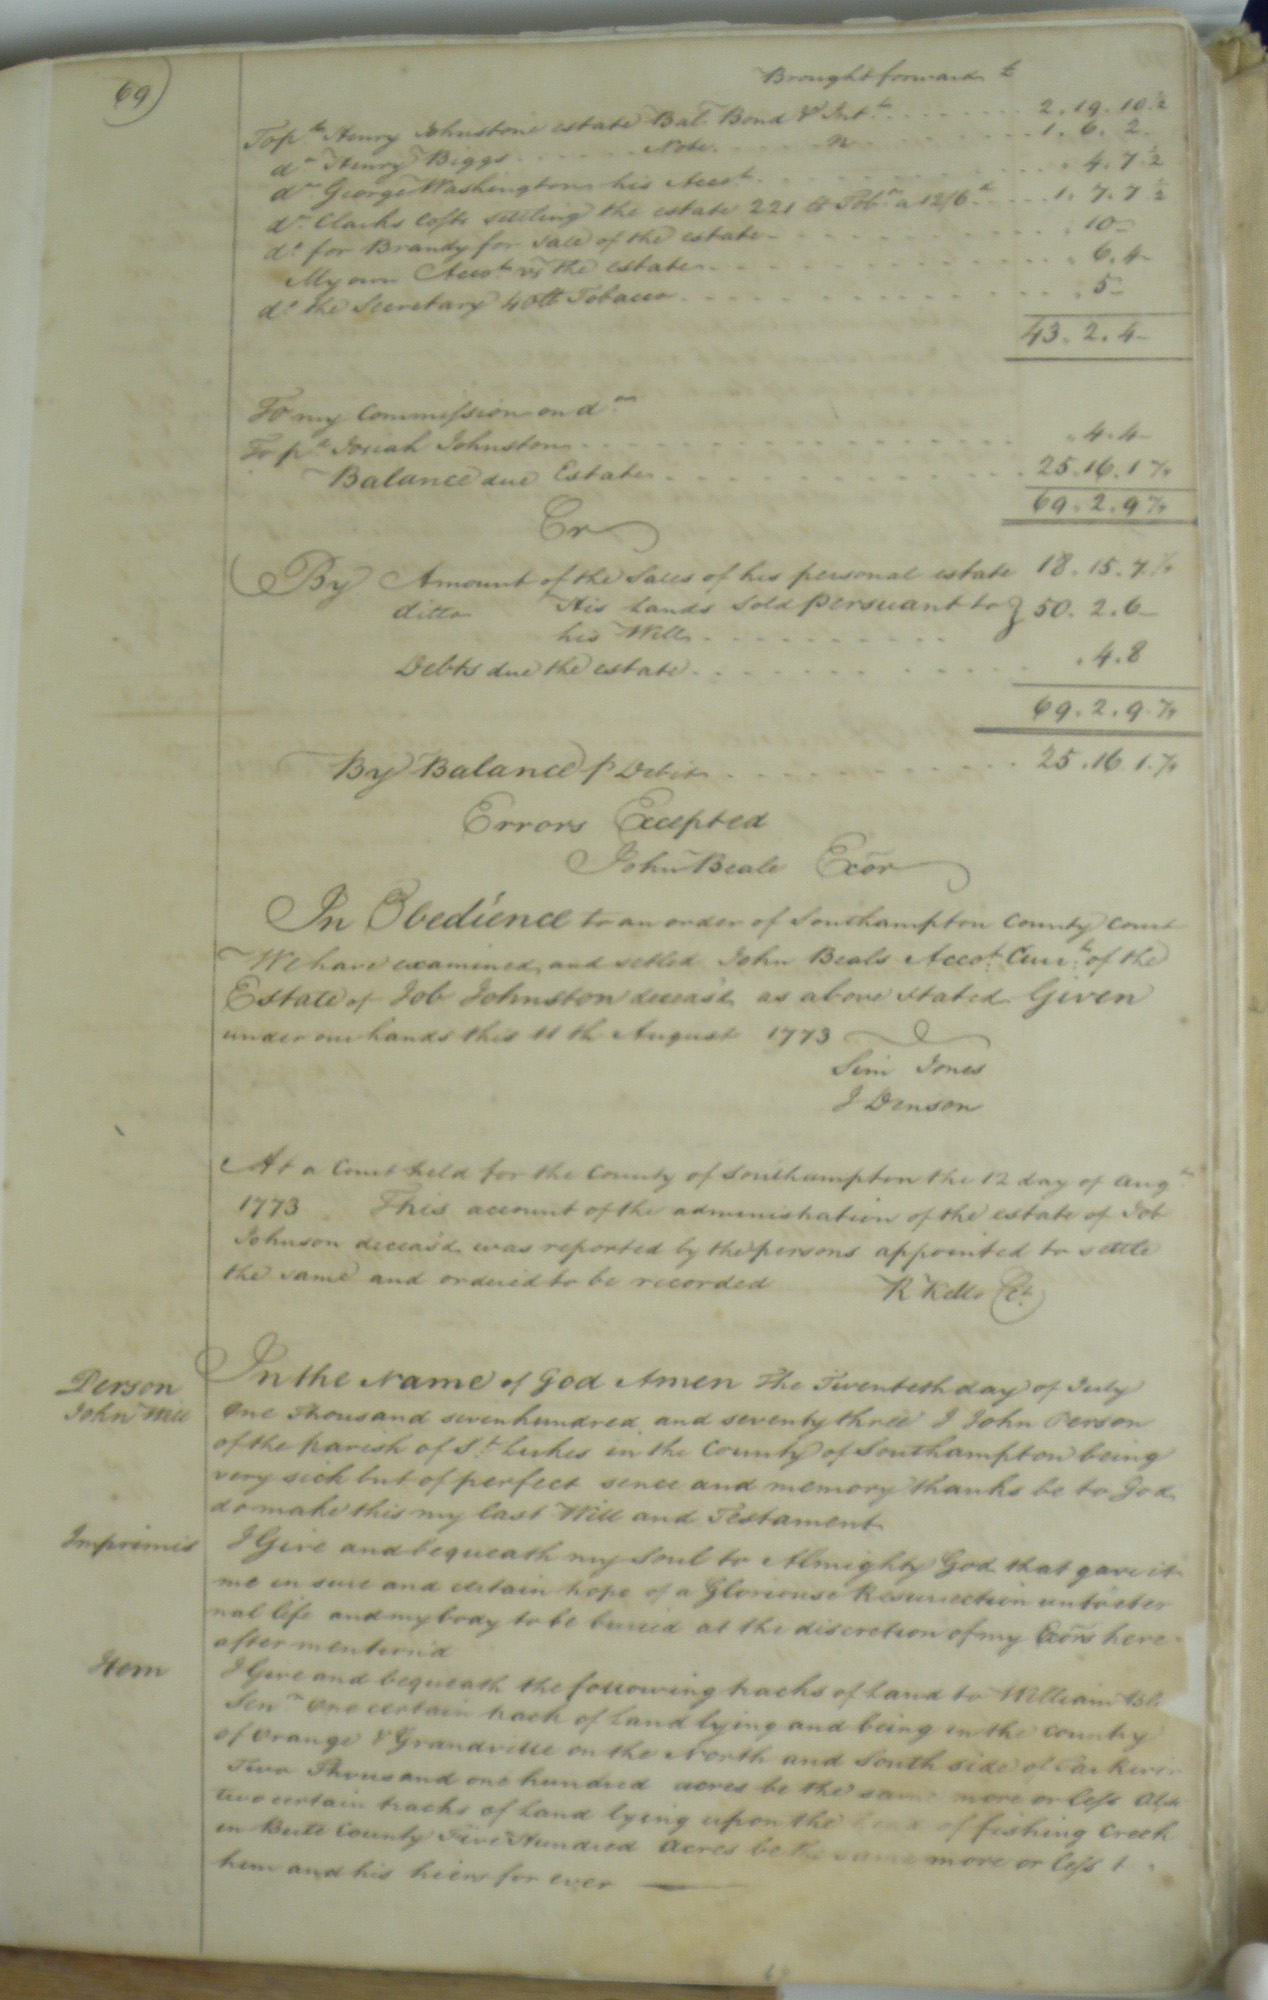 69
Brought forward £
To pd Henry Johnstons estate Bal. Bond & Intt 2. 19. 10½
do Henry Biggs Note 1. 6. 2
do George Washington his Acct . 4. 7½
do Clarks Costs settling the estate 221 lb Tobo a 12/6 1. 7. 7½
do for Brandy for sale of the estate . 10
My own Acct vs the estate . 6. 4
do the Secretary 40lb Tobacco . 5
43. 2. 4
To my Commission on do
To pd Josiah Johnston . 4. 4
Balance due Estate 25. 16. 1¾
69. 2. 9¾
Cr
By Amount of the Sales of his personal estate 18. 15. 7¾
ditto His Lands Sold persuant to } 50. 2. 6
his Will
Debts due the estate . 4. 8
69. 2. 9¾
By Balance p Debit 25. 16. 1¾
Errors Excepted
John Beale Exor
In Obedience to an order of Southampton County Court
We have examined and setled John Beals Accot. Curt. of the
Estate of Job Johnston deceasd as above stated Given
under our hands this 11th August 1773
Sim Jones
J Denson
At a Court held for the County of Southampton the 12 day of Augt
1773 This account of the administration of the estate of Job
Johnson deceasd was reported by the persons appointed to settle
the same and ordered to be recorded R Kello Ct.
Person
John Will
In the Name of God Amen The Twentieth day of July
One Thousand seven hundred and seventy three I John Person
of the parish of St. Lukes in the County of Southampton being
very sick but of perfect sence and memory thanks be to God
do make this my last Will and Testament
Imprimis I Give and bequeath my Soul to Almighty God that gave it
me in sure and certain hope of a Gloriouse Resurrection unto eter
nal life and my body to be buried at the discretion of my Exors here
after mention'd
Item I Give and bequeath the following tracks of Land to William
Senr One certain track of land lying and being in the Country
of Orange & Grandville on the North and South side of
Two Thousand one hundred acres be the same more or less Also
two certain tracks of Land lying upon the head of fishing Creek
in Bute County Five Hundred Acres be the same more or less t
him and his heirs for ever